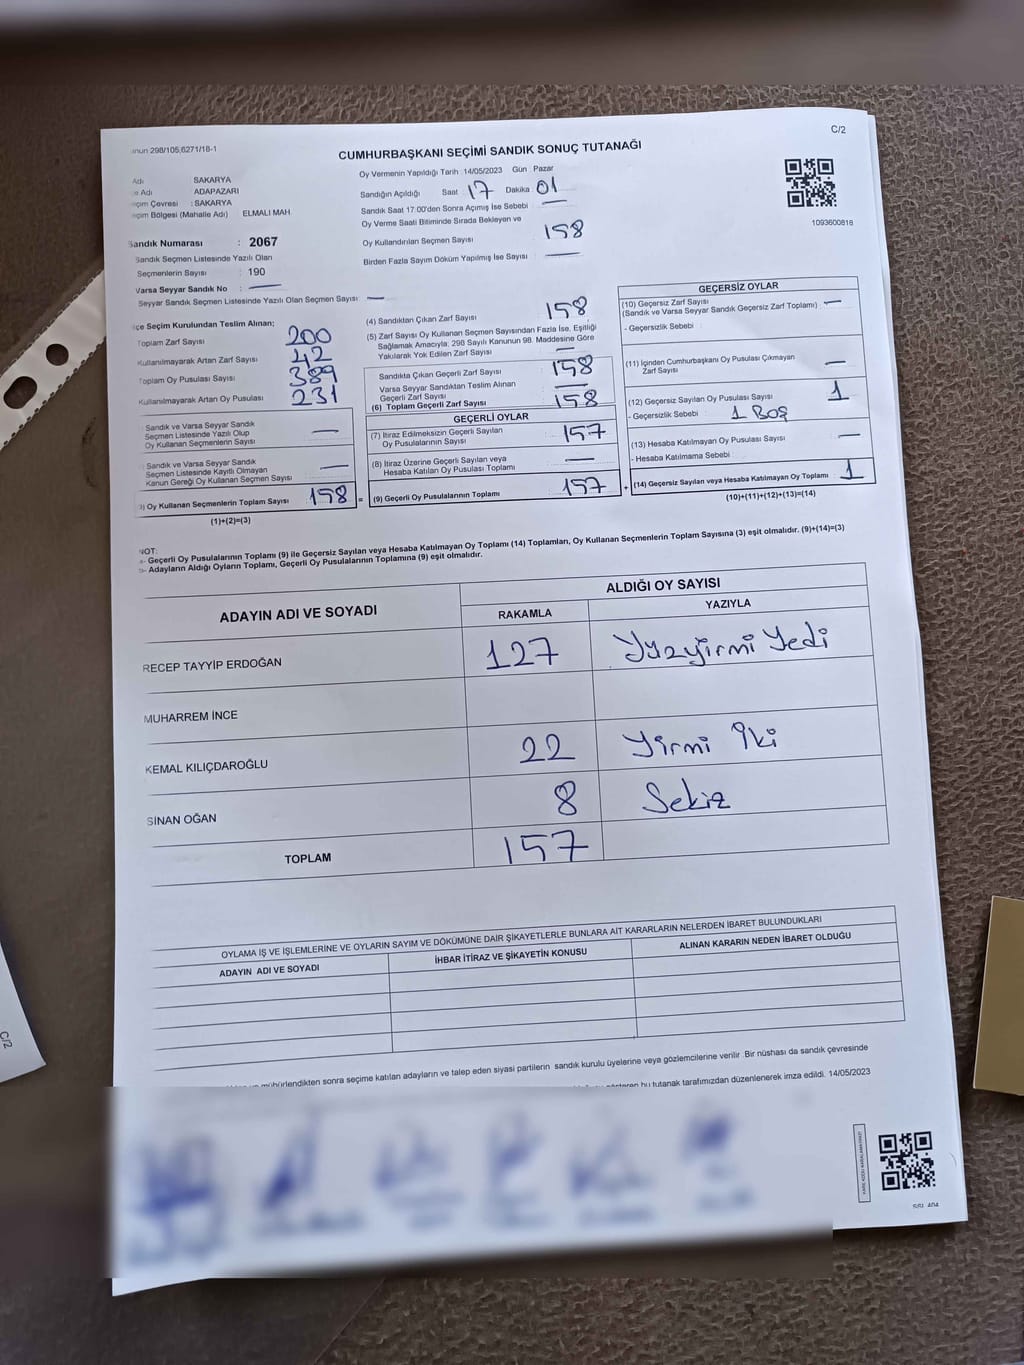 C/2
anun 298/105,6271/18-1
CUMHURBAŞKANI SEÇİMİ SANDIK SONUÇ TUTANAĞI
Adı SAKARYA
çe Adı ADAPAZARI
eçim Çevresi : SAKARYA
eçim Bölgesi (Mahalle Adı) ELMALI MAH
Sandık Numarası : 2067
Sandık Seçmen Listesinde Yazılı Olan
Seçmenlerin Sayısı : 190
Varsa Seyyar Sandık No : —
Seyyar Sandık Seçmen Listesinde Yazılı Olan Seçmen Sayısı : —
Oy Vermenin Yapıldığı Tarih : 14/05/2023 Gün : Pazar
Sandığın Açıldığı Saat 17 Dakika 01
Sandık Saat 17:00'den Sonra Açımış İse Sebebi —
Oy Verme Saati Bitiminde Sırada Bekleyen ve
Oy Kullandırılan Seçmen Sayısı 158
Birden Fazla Sayım Döküm Yapılmış İse Sayısı —
1093600818
çe Seçim Kurulundan Teslim Alınan;
Toplam Zarf Sayısı 200
Kullanılmayarak Artan Zarf Sayısı 42
Toplam Oy Pusulası Sayısı 389
Kullanılmayarak Artan Oy Pusulası 231
Sandık ve Varsa Seyyar Sandık
Seçmen Listesinde Yazılı Olup
Oy Kullanan Seçmenlerin Sayısı —
Sandık ve Varsa Seyyar Sandık
Seçmen Listesinde Kayıtlı Olmayan
Kanun Gereği Oy Kullanan Seçmen Sayısı —
3) Oy Kullanan Seçmenlerin Toplam Sayısı 158 =
(1)+(2)=(3)
(4) Sandıktan Çıkan Zarf Sayısı 158
(5) Zarf Sayısı Oy Kullanan Seçmen Sayısından Fazla İse, Eşitliği
Sağlamak Amacıyla; 298 Sayılı Kanunun 98. Maddesine Göre
Yakılarak Yok Edilen Zarf Sayısı —
Sandıkta Çıkan Geçerli Zarf Sayısı 158
Varsa Seyyar Sandıktan Teslim Alınan
Geçerli Zarf Sayısı —
(6) Toplam Geçerli Zarf Sayısı 158
GEÇERLİ OYLAR
(7) İtiraz Edilmeksizin Geçerli Sayılan
Oy Pusulalarının Sayısı 157
(8) İtiraz Üzerine Geçerli Sayılan veya
Hesaba Katılan Oy Pusulası Toplamı —
(9) Geçerli Oy Pusulalarının Toplamı 157 +
GEÇERSİZ OYLAR
(10) Geçersiz Zarf Sayısı —
(Sandık ve Varsa Seyyar Sandık Geçersiz Zarf Toplamı)
- Geçersizlik Sebebi :
(11) İçinden Cumhurbaşkanı Oy Pusulası Çıkmayan
Zarf Sayısı —
(12) Geçersiz Sayılan Oy Pusulası Sayısı 1
- Geçersizlik Sebebi : 1 Boş
(13) Hesaba Katılmayan Oy Pusulası Sayısı —
- Hesaba Katılmama Sebebi :
(14) Geçersiz Sayılan veya Hesaba Katılmayan Oy Toplamı 1
(10)+(11)+(12)+(13)=(14)
NOT:
a- Geçerli Oy Pusulalarının Toplamı (9) ile Geçersiz Sayılan veya Hesaba Katılmayan Oy Toplamı (14) Toplamları, Oy Kullanan Seçmenlerin Toplam Sayısına (3) eşit olmalıdır. (9)+(14)=(3)
b- Adayların Aldığı Oyların Toplamı, Geçerli Oy Pusulalarının Toplamına (9) eşit olmalıdır.
ADAYIN ADI VE SOYADI
ALDIĞI OY SAYISI
RAKAMLA YAZIYLA
RECEP TAYYİP ERDOĞAN 127 Yüzyirmi Yedi
MUHARREM İNCE
KEMAL KILIÇDAROĞLU 22 Yirmi İki
SİNAN OĞAN 8 Sekiz
TOPLAM 157
OYLAMA İŞ VE İŞLEMLERİNE VE OYLARIN SAYIM VE DÖKÜMÜNE DAİR ŞİKAYETLERLE BUNLARA AİT KARARLARIN NELERDEN İBARET BULUNDUKLARI
ADAYIN ADI VE SOYADI İHBAR İTİRAZ VE ŞİKAYETİN KONUSU ALINAN KARARIN NEDEN İBARET OLDUĞU
mühürlendikten sonra seçime katılan adayların ve talep eden siyasi partilerin sandık kurulu üyelerine veya gözlemcilerine verilir. Bir nüshası da sandık çevresinde
bu tutanak tarafımızdan düzenlenerek imza edildi. 14/05/2023
C/2